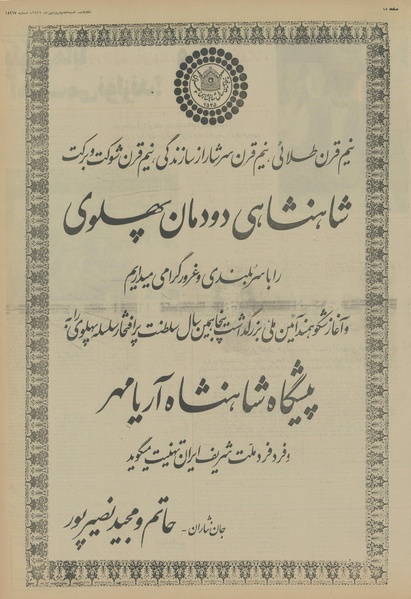 صفحه ۱۰
نیم قرن طلائی، نیم قرن سرشار از سازندگی، نیم قرن شوکت و برکت
شاهنشاهی دودمان پهلوی
را با سربلندی و غرور گرامی میداریم
و آغاز شکوهمند آئین ملی بزرگداشت پنجاهمین سال سلطنت پرافتخار سلسله پهلوی را به
پیشگاه شاهنشاه آریامهر
و فرد فرد ملت شریف ایران تهنیت میگوید
جان نثاران - حاتم و مجید نصیرپور